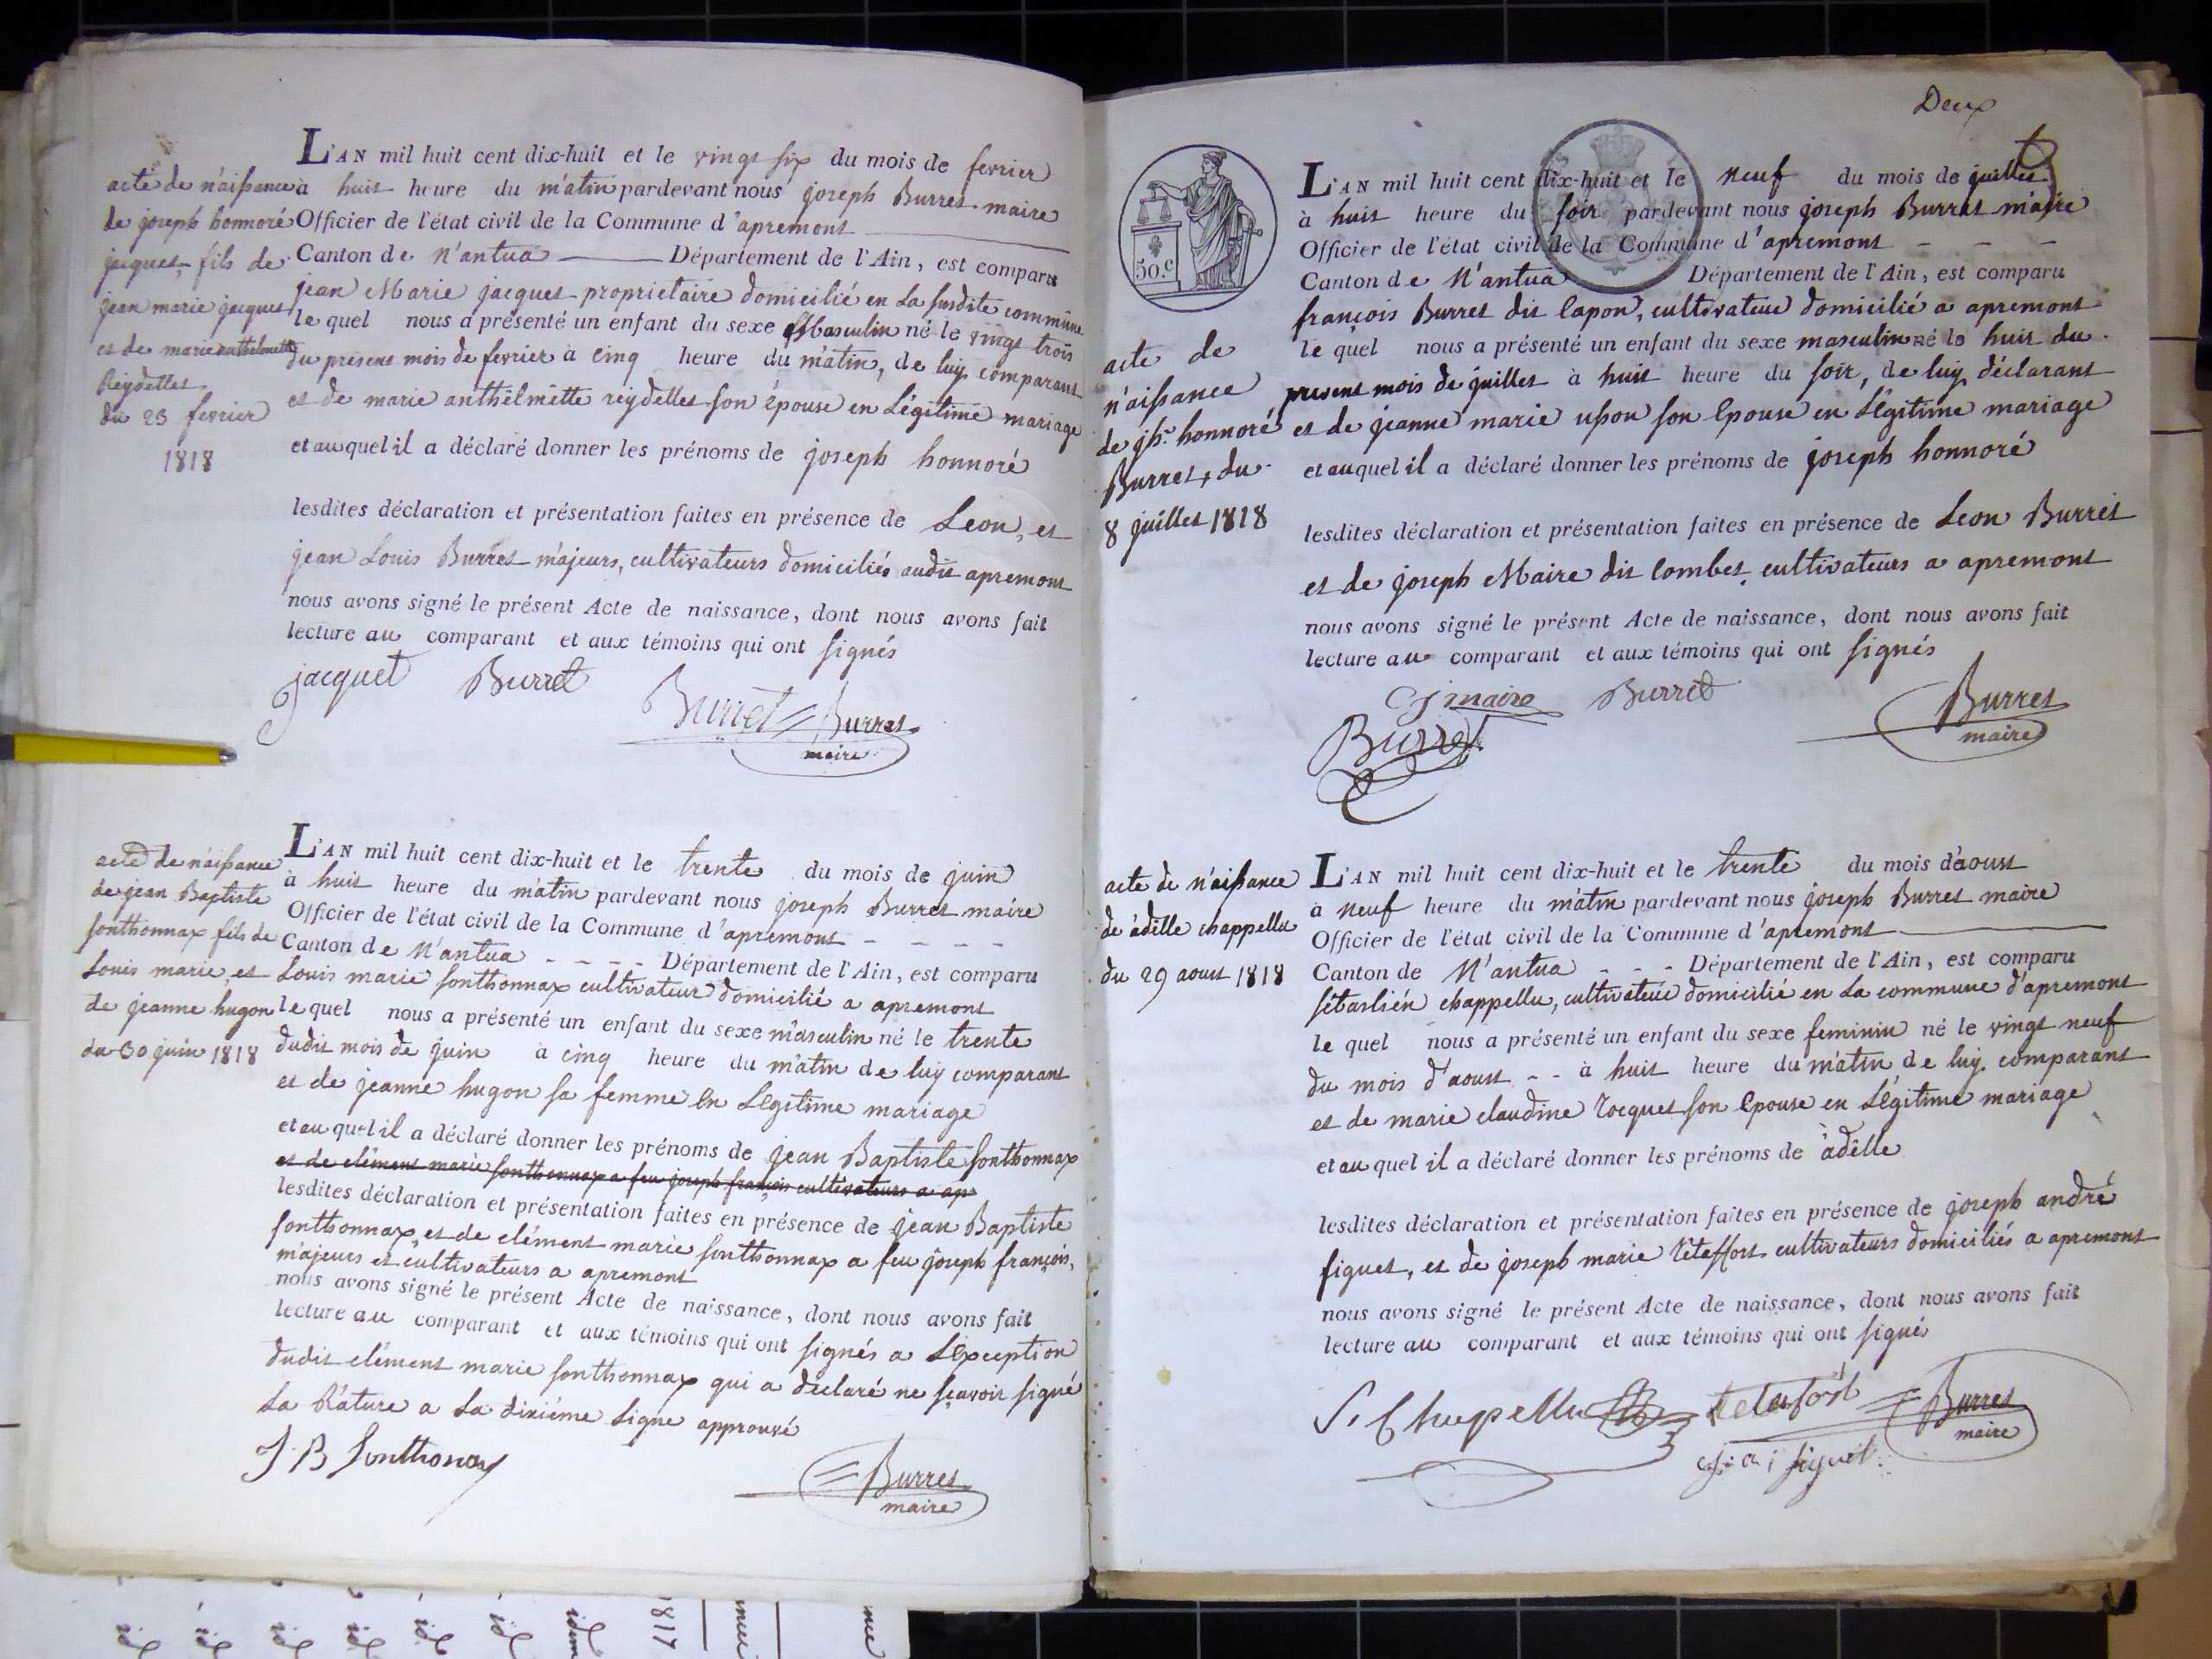 acte de n'aissance
de joseph honnoré
jacquet, fils de
jean marie jacquet
et de marie anthelmette
Reydellet
du 23 fevrier
1818
L'AN mil huit cent dix-huit et le vingt six du mois de fevrier
à huit heure du m'atin pardevant nous joseph Burret maire
Officier de l'état civil de la Commune d'apremont
Canton de N'antua Département de l'Ain, est comparu
jean Marie jacquet proprietaire domicilié en La susdite commune
le quel nous a présenté un enfant du sexe Masculin né le vingt trois
du present mois de fevrier à cinq heure du m'atin, de luy comparant
et de marie anthelmette reydellet son épouse en Légitime mariage
et au quel il a déclaré donner les prénoms de joseph honnoré
lesdites déclaration et présentation faites en présence de Leon, et
jean Louis Burret m'ajeurs, cultivateurs domiciliés audit apremont
nous avons signé le présent Acte de naissance, dont nous avons fait
lecture au comparant et aux témoins qui ont signés
jacquet Burret
Burret Burret
maire
acte de n'aissance
de jean Baptiste
sonthonnax fils de
Louis marie, et
de jeanne hugon
du 30 juin 1818
L'AN mil huit cent dix-huit et le trente du mois de juin
à huit heure du m'atin pardevant nous joseph Burret maire
Officier de l'état civil de la Commune d'apremont - - - -
Canton de N'antua - - - - Département de l'Ain, est comparu
Louis marie sonthonnax cultivateur domicilié a apremont
le quel nous a présenté un enfant du sexe m'asculin né le trente
dudit mois de juin à cinq heure du m'atin de luy comparant
et de jeanne hugon sa femme en Légitime mariage
et au quel il a déclaré donner les prénoms de jean Baptiste sonthonnax
et de clément marie sonthonnax a feu joseph françois cultivateurs a ap
lesdites déclaration et présentation faites en présence de jean Baptiste
sonthonnax, et de clément marie sonthonnax a feu joseph françois,
m'ajeurs et cultivateurs a apremont
nous avons signé le présent Acte de naissance, dont nous avons fait
lecture au comparant et aux témoins qui ont signés a L'exception
dudit clément marie sonthonnax qui a declaré ne sçavoir signé
La Râture a La dixiéme Ligne approuvé
J B Sonthonax
Burret
maire
Deux
50.c
acte de
n'aissance
de jph. honnoré
Burret, du
8 juillet 1818
L'AN mil huit cent dix-huit et le neuf du mois de juillet
à huit heure du soir pardevant nous joseph Burret m'aire
Officier de l'état civil de la Commune d'apremont - - -
Canton de N'antua Département de l'Ain, est comparu
françois Burret dit Capon, cultivateur domicilié a apremont
le quel nous a présenté un enfant du sexe masculin né le huit du
present mois de juillet à huit heure du soir, de luy déclarant
et de jeanne marie upon son Epouse en Légitime mariage
et au quel il a déclaré donner les prénoms de joseph honnoré
lesdites déclaration et présentation faites en présence de Leon Burret
et de joseph Maire dit Combet, cultivateurs a apremont
nous avons signé le présent Acte de naissance, dont nous avons fait
lecture au comparant et aux témoins qui ont signés
j maire Burret
Burret
Burret
maire
acte de n'aissance
de adelle chappellu
du 29 aoust 1818
L'AN mil huit cent dix-huit et le trente du mois d'aoust
à neuf heure du m'atin pardevant nous joseph Burret maire
Officier de l'état civil de la Commune d'apremont
Canton de N'antua - - - Département de l'Ain, est comparu
sébastién chappellu, cultivateur domicilié en La commune d'apremont
le quel nous a présenté un enfant du sexe feminin né le vingt neuf
du mois d'aoust - - à huit heure du m'atin de luy comparant
et de marie claudine Jocquet son Epouse en Légitime mariage
et au quel il a déclaré donner les prénoms de adélle
lesdites déclaration et présentation faites en présence de joseph andré
figuet, et de joseph marie Tétaffort cultivateurs domiciliés a apremont
nous avons signé le présent Acte de naissance, dont nous avons fait
lecture au comparant et aux témoins qui ont signés
S. Chapellu tetafort Burret
maire
j. a. figuet
1817
idem
id
id
id
id
id